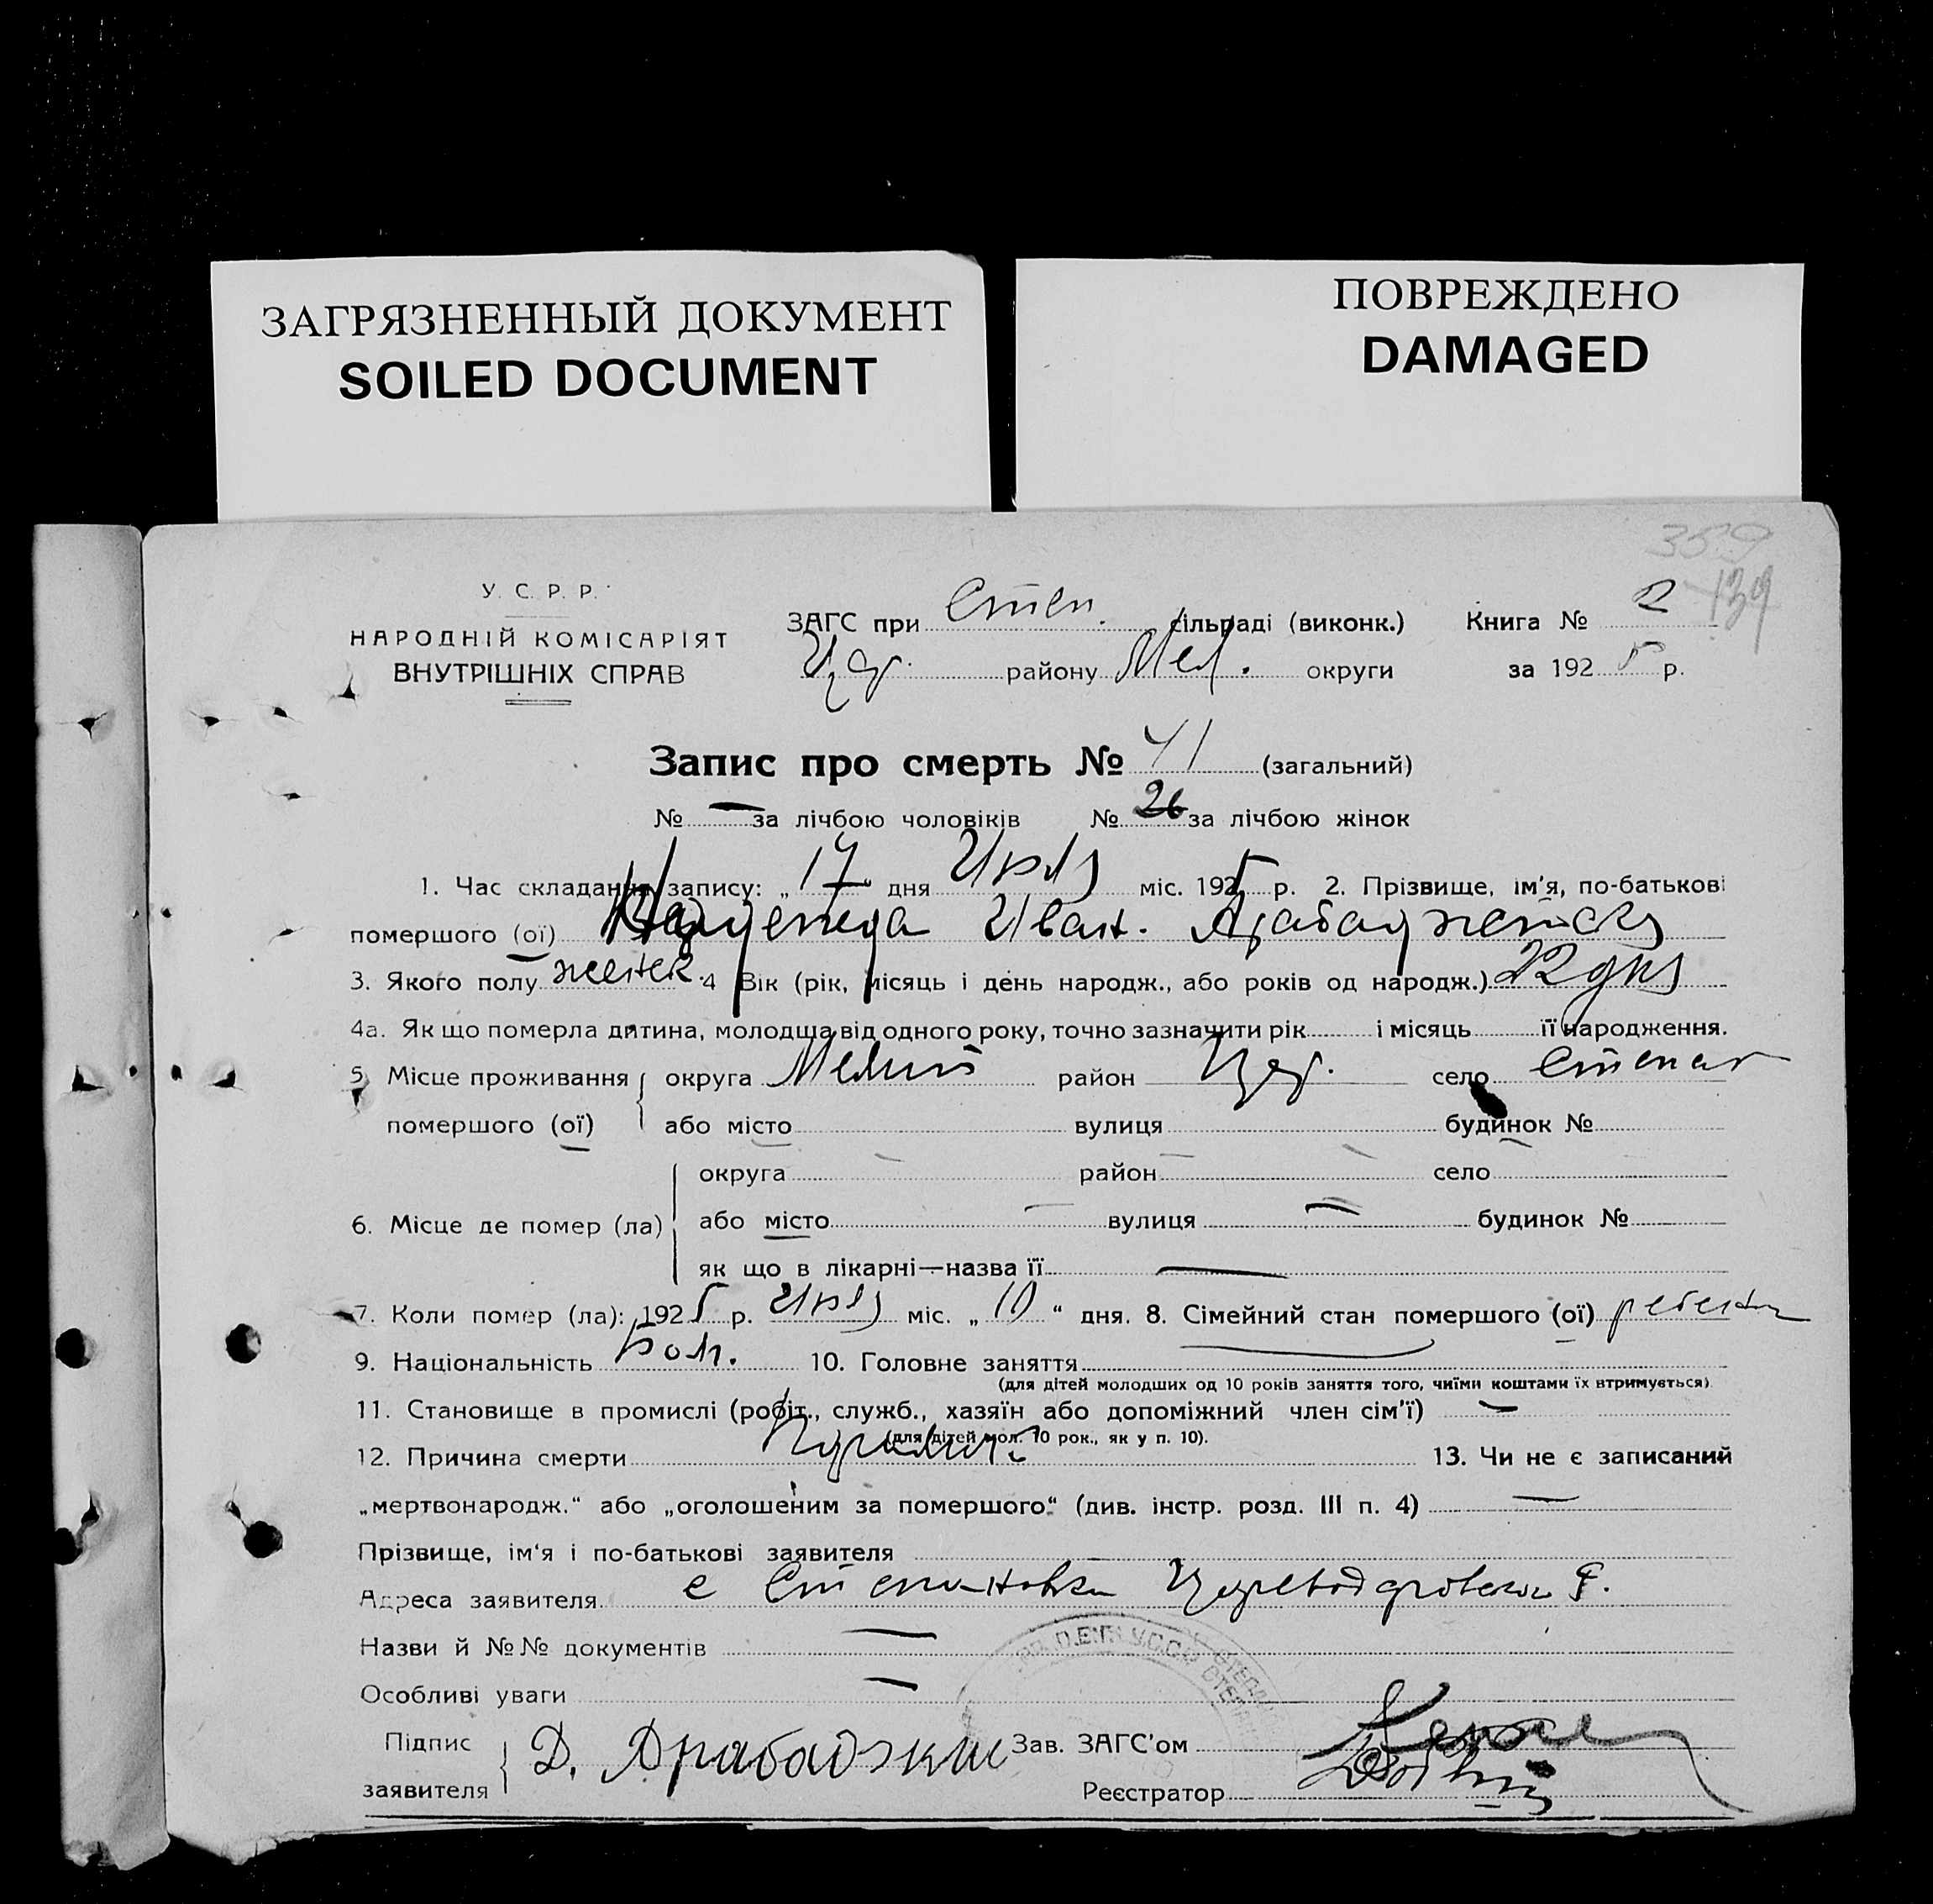 ЗАГРЯЗНЕННЫЙ ДОКУМЕНТ
SOILED DOCUMENT
ПОВРЕЖДЕНО
DAMAGED
359
139
У. С. Р. Р.
НАРОДНІЙ КОМІСАРІЯТ
ВНУТРІШНІХ СПРАВ
ЗАГС при Степ. сільраді (виконк.) Книга № 2
району Мел. округи за 192 5 р.
Запис про смерть № 41 (загальний)
№ — за лічбою чоловіків № 26 за лічбою жінок
1. Час складання запису: „ 17 " дня Июля міс. 1925 р. 2. Прізвище, ім'я, по-батькові
помершого (ої) Иван.
3. Якого полу женск. 4 Вік (рік, місяць і день народж., або років од народж.) 22 дня
4а. Як що померла дитина, молодша від одного року, точно зазначити рік і місяць її народження.
5. Місце проживання округа район село
помершого (ої) або місто вулиця будинок №
округа район село
6. Місце де помер (ла) або місто вулиця — будинок №
як що в лікарні—назва її —
7. Коли помер (ла): 192 5 р. Июля міс. „ 10 " дня. 8. Сімейний стан помершого (ої)
9. Національність Бол. 10. Головне заняття
(для дітей молодших од 10 років заняття того, чиїми коштами їх втримується)
11. Становище в промислі (робіт., служб., хазяїн або допоміжний член сім'ї) —
(для дітей мол. 10 рок., як у п. 10).
12. Причина смерти 13. Чи не є записаний
„мертвонародж.“ або „оголошеним за помершого“ (див. інстр. розд. III п. 4) —
Прізвище, ім'я і по-батькові заявителя
Адреса заявителя с Степановка
Назви й №№ документів —
Особливі уваги —
Підпис
заявителя
Д. Арабаджи
Зав. ЗАГС'ом
Реєстратор